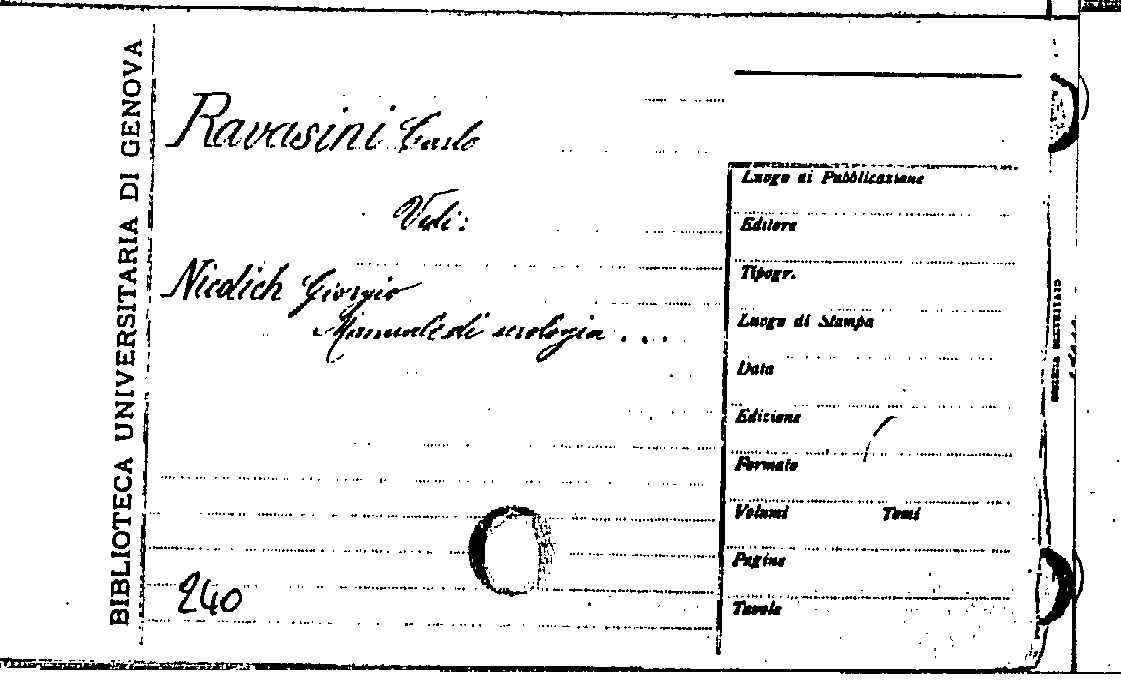 BIBLIOTECA UNIVERSITARIA DI GENOVA
Ravasini Carlo
Vedi:
Nicolich Giorgio
Manuale di urologia ...
240
Luogo di Pubblicazione
Editore
Tipogr.
Luogo di Stampa
Data
Edizione
Formato
Volumi Tomi
Pagine
Tavole